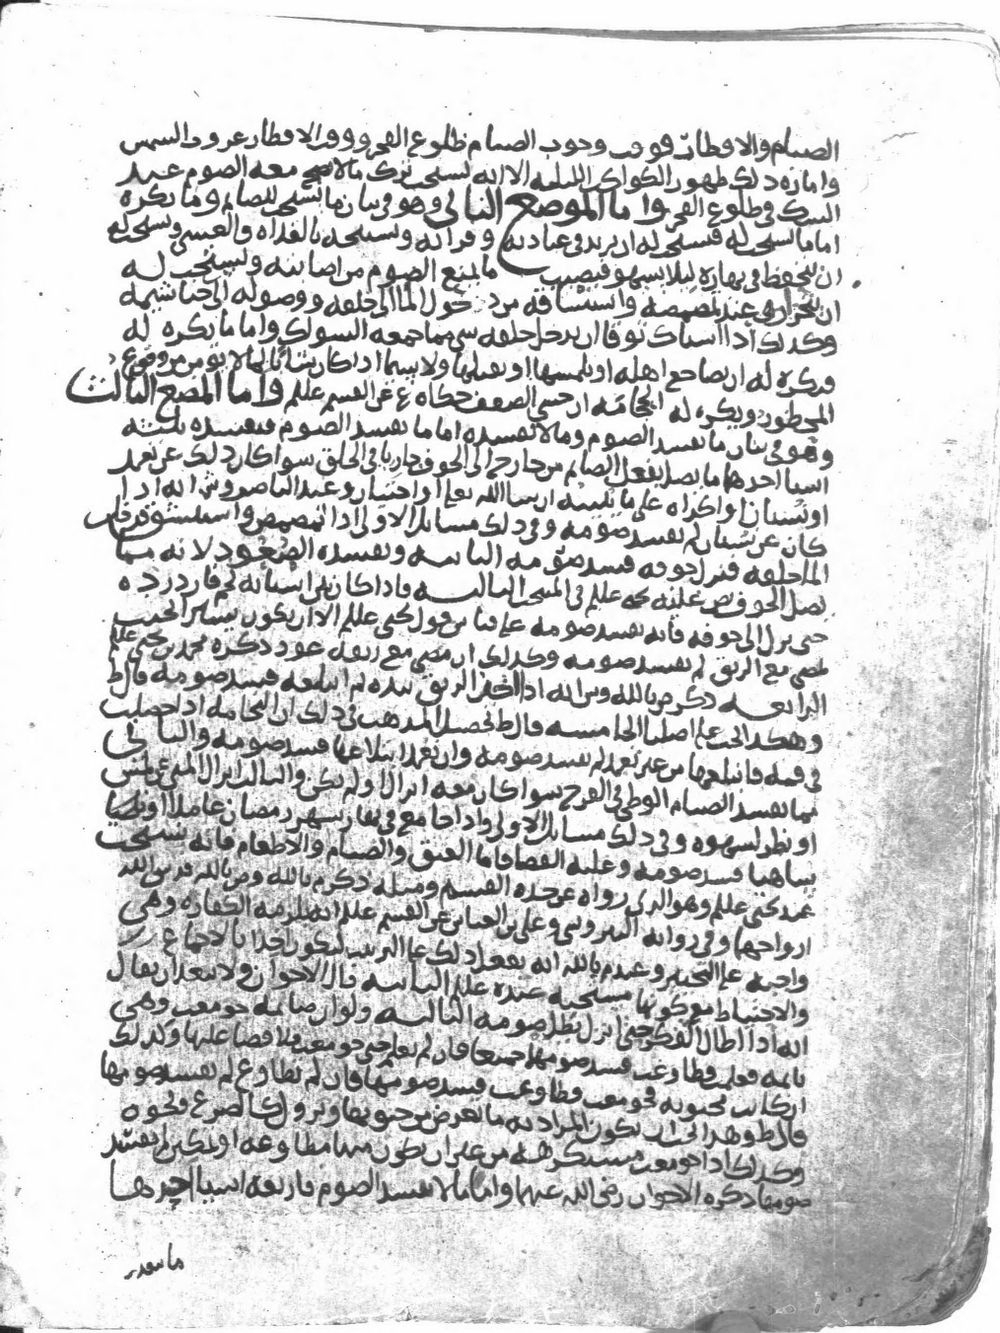 الصيام والافطار فوقت وجوب الصيام طلوع الفجر ووقت الافطار غروب الشمس
وامارة ذلك ظهور الكواكب الليلية الا انه يستحب ترك مالا يصح معه الصوم عند
الشك في طلوع الفجر واما الموضع الثاني وهو في بيان ما يستحب للصائم وما يكره
اما ما يستحب له فيستحب له ان يزيد في عبادته وقرآنه وتسبيحه بالغداة والعشي ويستحب له
ان يتحفظ في نهاره ليلا يسهو فيصيب ما يمنع الصوم من اصابته ويستحب له
ان يتحرز في عند المضمضة واستنشاقه من دخول الما الى حلقه ووصوله الى خياشيمه
وكذلك اذا استاك توقا ان يدخل حلقه شي مما جمعه السواك واما ما يكره له
فيكره له ان يضاجع اهله او يلمسها او يقبلها ولا سيما اذا كان شابا لما لا يؤمن من وقوع
المحظور ويكره له الحجامة ان خشي الضعف حكاه ع عن القسم عليلم واما الموضع الثالث
وهو في بيان ما يفسد الصوم وما لا يفسده اما ما يفسد الصوم فيفسده ثلثة
اشيا احدها ما يصل بفعل الصائم من خارج الى الجوف جاريا في الحلق سوا كان ذلك عن تعمد
او نسيان او اكراه على ما نبينه ان شا الله تعا او اختيار وعند الناصر وش انه اذا
كان عن نسيان لم يفسد صومه وفي ذلك مسايل الاولى اذا تمضمض واستنشق فدخل
الما حلقه فنزل جوفه فسد صومه الثانية ويفسده الصعوط لانه مما
يصل الجوف نص عليه يحيى عليلم في المنتخب الثالثة فاذا كان بين اسنانه لحم فازدرده
حتى نزل الى جوفه فانه يفسد صومه على قياس قول يحيى عليلم الا ان يكون يسيرا لحيث
يمضي مع الريق لم يفسد صومه وكذلك ان مضى مع ريقه عود ذكره محمد بن يحيى عليلم
الرابعة ذكر ص بالله وش انه اذا اخذ الريق بيده ثم ابتلعه فسد صومه قال ط
وهكذا يجب على اصلنا الخامسة قال ط تحصيل المذهب في ذلك ان النخامة اذا حصلت
في فمه فابتلعها من غير تعمد لم يفسد صومه وان تعمد ابتلاعها فسد صومه والثاني
مما يفسد الصيام الوطي في الفرج سوا كان معه انزال او لم يكن والثالث انزال المني عن لمس
او نظر لشهوة وفي ذلك مسايل الاولى واذا جامع في نهار شهر رمضان عامدا او ناسيا
ساهيا فسد صومه وعليه القضا فاما العتق والصيام والاطعام فانه يستحب
عند يحيى عليلم وهو الذي رواه عن جده القسم ومثله ذكر م بالله وص بالله قدس الله
ارواحهما وفي رواية النيروسي وعلي بن العباس عن القسم عليلم انه يلزمه الكفارة وهي
واجبة على التخيير وعند م بالله انه يفعل ذلك على الترتيب ليكون اخذا بالاجماع
والاحتياط مع كونها مستحبة عنده عليلم الثانية قال الاخوان ولا يبعد ان يقال
انه اذا اطال الفكر حتى انزل بطل صومه الثالثة ولو ان صائمة جومعت وهي
نائمة فعلمت وطاوعت فسد صومهما جميعا فان لم تعلم حتى جومعت فلا قضا عليها وكذلك
ان كانت مجنونة فجومعت وطاوعت فسد صومها فان لم تطاوع لم يفسد صومها
قال ط وهذا الجنون يكون المراد به ما يعرض من جنونها ويزول كالصرع ونحوه
وكذلك اذا جومعت مستكرهة من غير ان يكون منها مطاوعة او تمكين لم يفسد
صومها ذكره الاخوان رضي الله عنهما واما ما لا يفسد الصوم فاربعة اشيا احدها